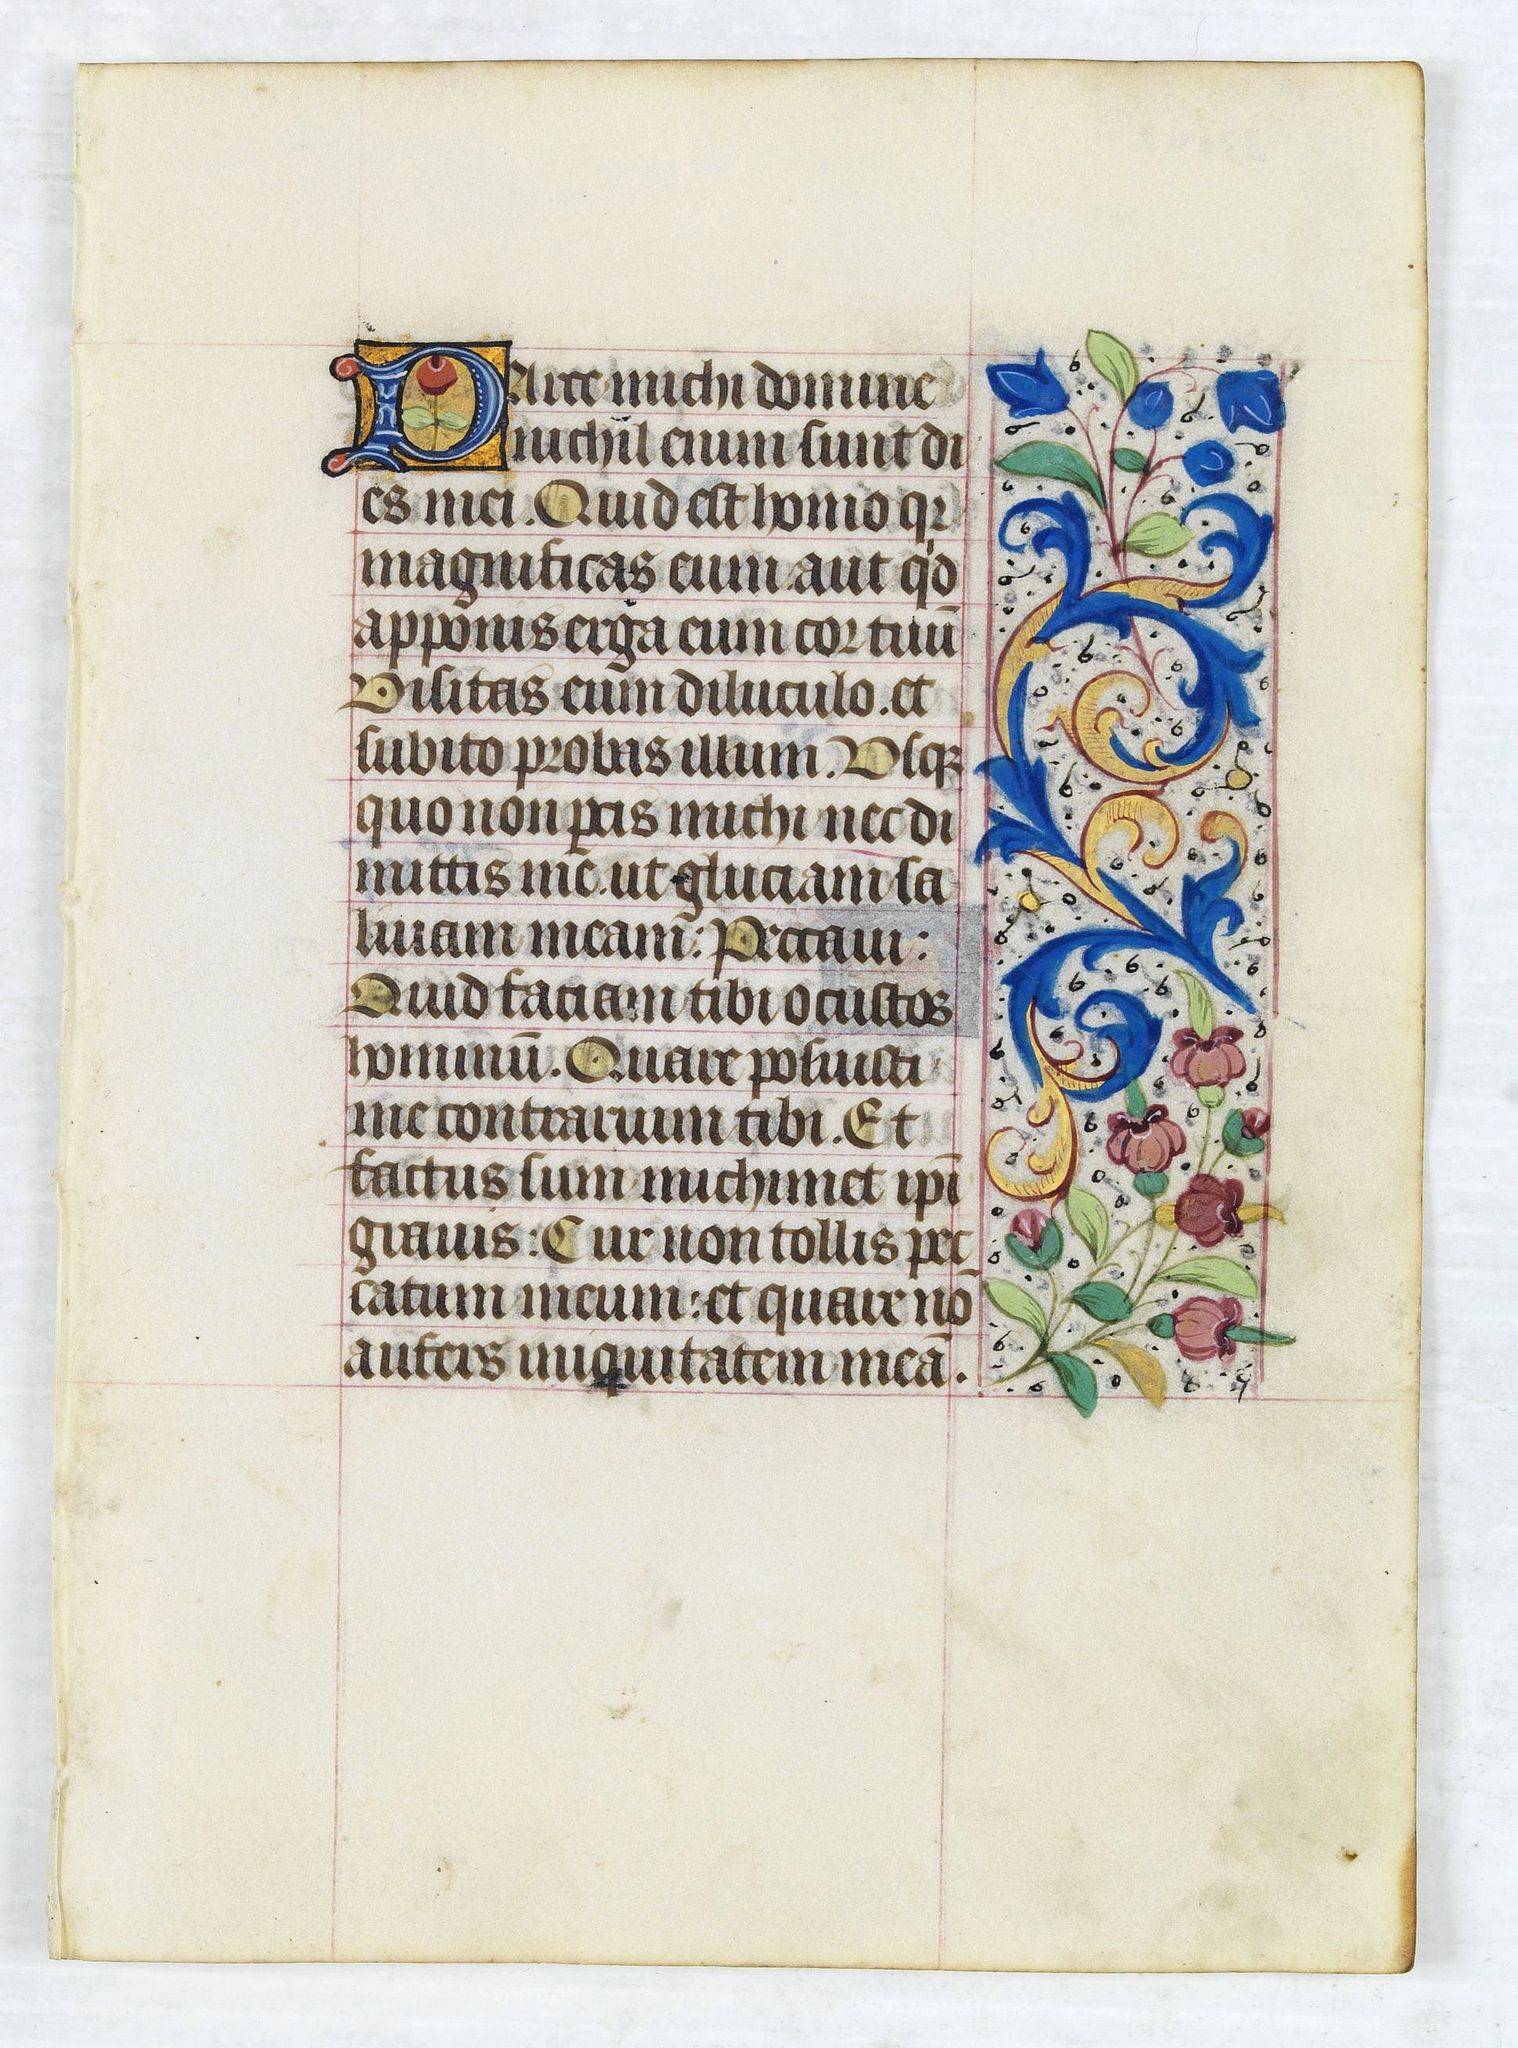 PArce michi domine
nichil enim sunt di
es mei. Quid est homo qr
magnificas eum aut q'd
apponis erga eum cor tuū
Visitas eum diluculo. et
subito probas illum. Vsqꝫ
quo non ꝑcis michi nec di
mittis me. ut gluciam sa
liuam meam: Peccaui:
Quid faciam tibi o custos
hominū. Quare posuisti
me contrarium tibi. Et
factus sum michimet ipī
grauis: Cur non tollis pec
catum meum: et quare nō
aufers iniquitatem meā.